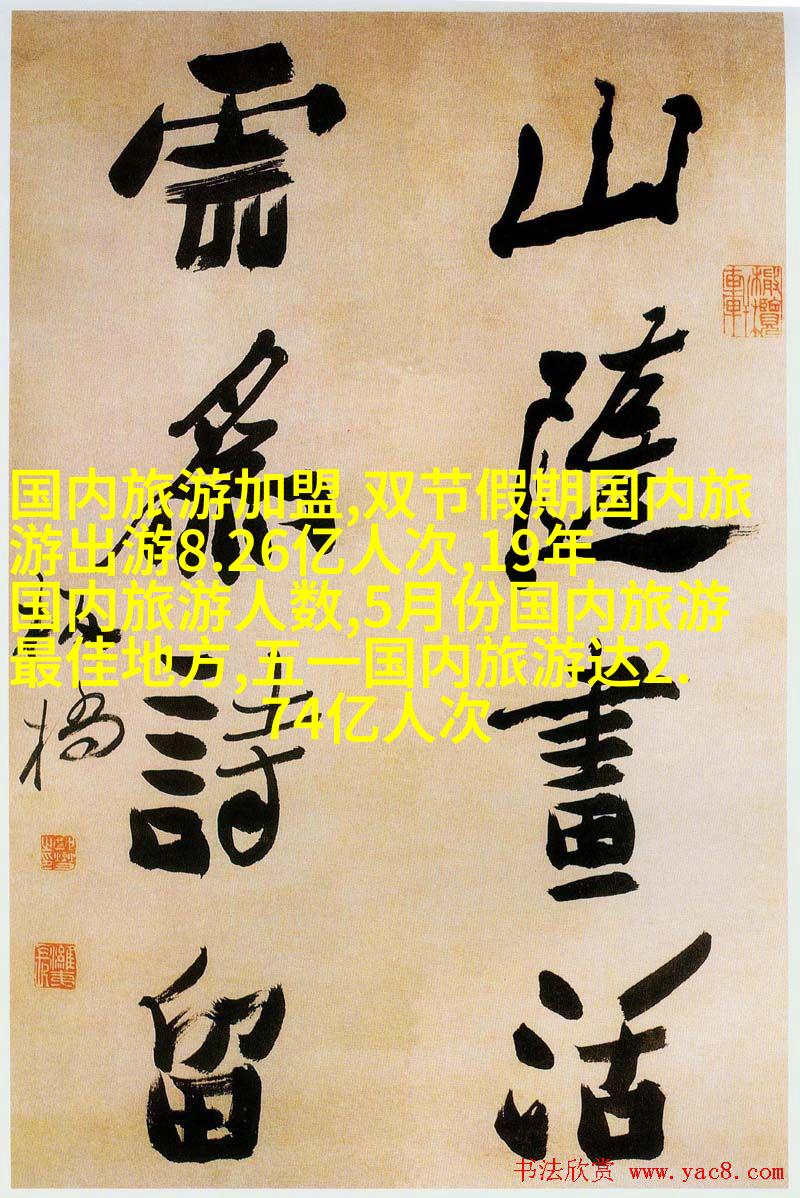 山隨畫活
雲爲詩留
板橋
国内旅游加盟,双节假期国内旅
游出游8.26亿人次,19年
国内旅游人数,5月份国内旅游
最佳地方,五一国内旅游达2.
74亿人次
书法欣赏 www.yac8.com